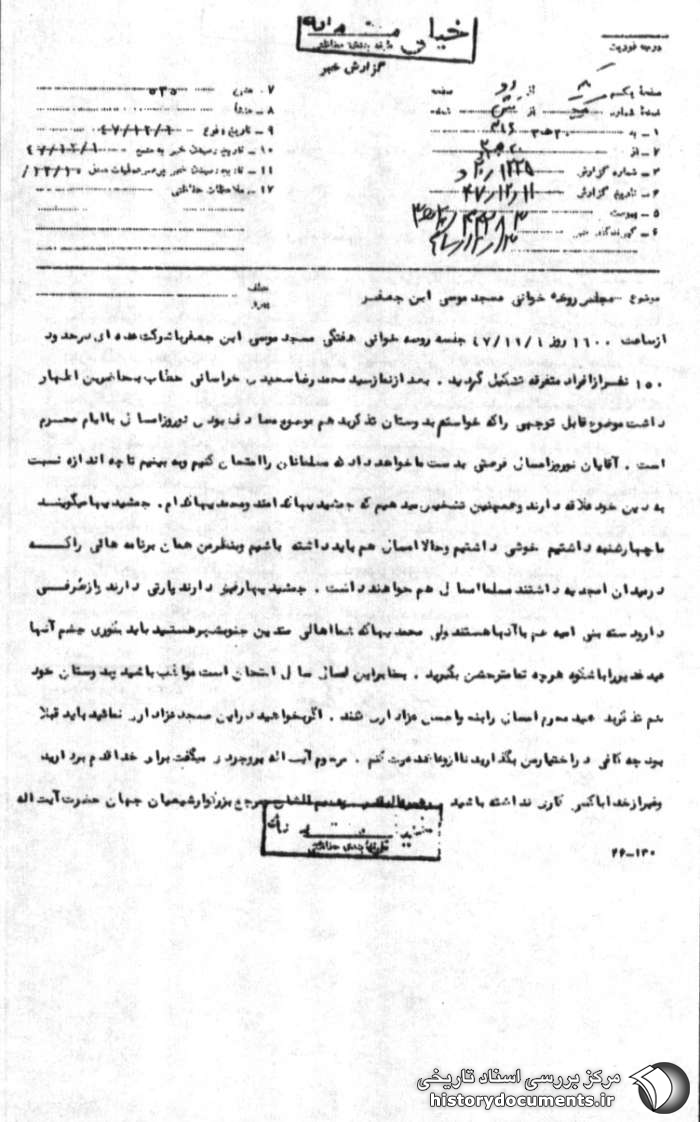 خیلی محرمانه
طبقه بندی حفاظتی
گزارش خبر
درجه فوریت
صفحه یکم از دو صفحه
نسخه شماره از نسخه
۱ – به ۳۱۶
۲ – از ۲۰ه۳
۳ – شماره گزارش
۴ – تاریخ گزارش ۴۷/۱۲/۱۱
۵ – پیوست
۶ – گیرندگان خبر
۷ –
۸ – منشأ
۹ – تاریخ وقوع ۴۷/۱۲/۱
۱۰ – تاریخ رسیدن خبر به منبع ۴۷/۱۲/۱
۱۱ – تاریخ رسیدن خبر به رهبر عملیات
۱۲ – ملاحظات حفاظتی
موضوع – مجلس روضه خوانی مسجد موسی ابن جعفر
از ساعت ۱۶۰۰ روز جلسه روضه خوانی هفتگی مسجد موسی ابن جعفر با شرکت عده ای در حدود
۱۵۰ نفر از افراد متفرقه تشکیل گردید . بعد از نماز سید محمد رضا سعیدی خراسانی خطاب به حاضرین اظهار
داشت موضوع قابل توجهی را که خواستم بدوستان تذکر بدهم موضوع مصادف بودن نوروز امسال با ایام محرم
است . آقایان نوروز امسال فرصتی بدست ما خواهد داد که مسلمانان را امتحان کنیم و به بینیم تا چه اندازه نسبت
به دین خود علاقه دارند و همچنین تشخیص میدهیم که جمشیدیها کدامند و محمدیها کدام . جمشیدیها میگویند
ما چهارشنبه داشتیم خوشی داشتیم و حالا امسال هم باید داشته باشیم و بنظر من همان برنامه هائی را که
در میدان امجدیه داشتند مسلما امسال هم خواهند داشت . جمشیدیها رفیق دارند پارتی دارند و از طرفی
دارودسته بنی امیه هم با آنها هستند ولی محمدیها که شما اهالی متدین جنوب شهر هستید باید بکوری چشم آنها
عید غدیر را باشکوه هرچه تمامتر جشن بگیرید . بنابراین امسال سال امتحان است مواظب باشید بدوستان خود
هم تذکر دهید محرم امسان را بنحو احسن عزاداری کنند . اگر بخواهید در این مسجد عزاداری نمائید باید قبلا
بودجه کافی در اختیار من بگذارید تا از وعاظ دعوت کنم . مرحوم آیت اله بروجردی میگفت برای خدا قدم بردارید
و غیر از خدا با کسی کاری نداشته باشید مرجع بزرگوار شیعیان جهان حضرت آیت اله
خیلی محرمانه
طبقه بندی حفاظتی
۲۶–۱۳۰
مرکز بررسی اسناد تاریخی
historydocuments.ir